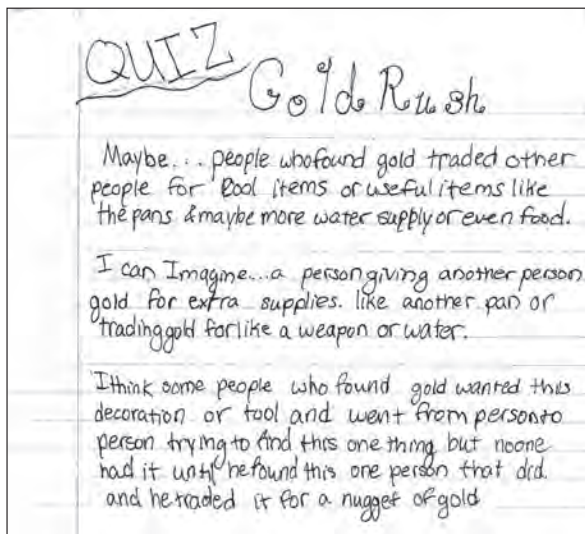 QUIZ
Gold Rush
Maybe... people who found gold traded other
people for Cool items or useful items like
the pans & maybe more water supply or even food.
I can Imagine... a person giving another person
gold for extra supplies. like another pan or
trading gold for like a weapon or water.
I think some people who found gold wanted this
decoration or tool and went from person to
person trying to find this one thing but no one
had it until he found this one person that did.
and he traded it for a nugget of gold